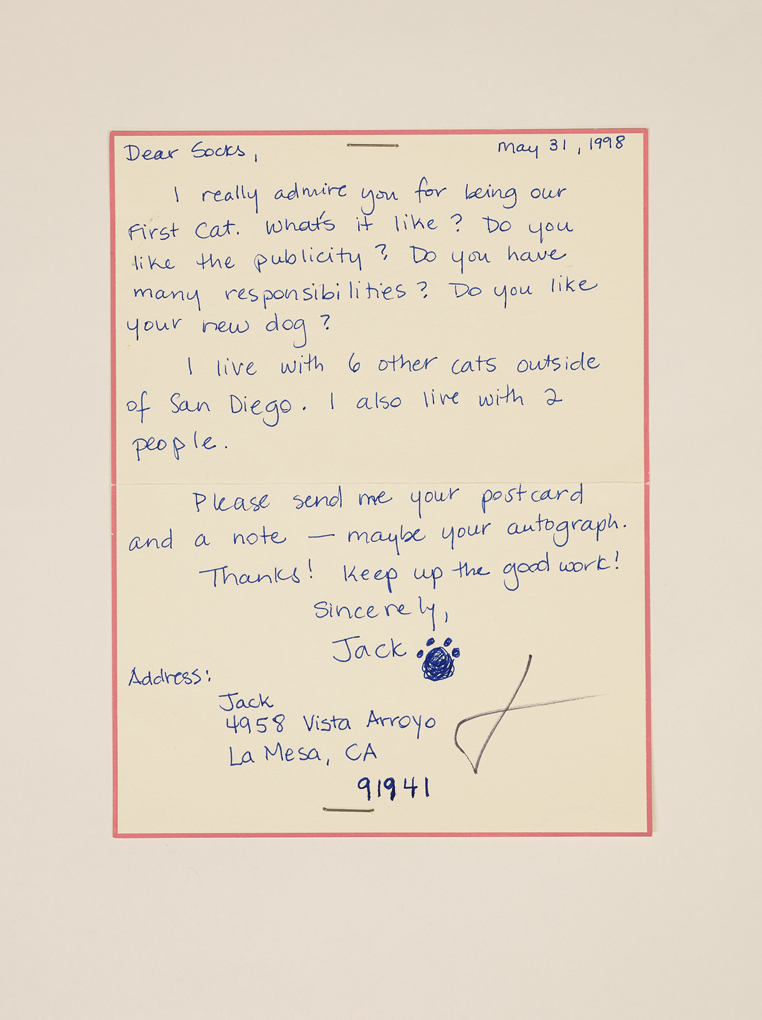 Dear Socks, May 31, 1998
I really admire you for being our
First Cat. What's it like? Do you
like the publicity? Do you have
many responsibilities? Do you like
your new dog?
I live with 6 other cats outside
of San Diego. I also live with 2
people.
Please send me your postcard
and a note — maybe your autograph.
Thanks! Keep up the good work!
Sincerely,
Jack
Address:
Jack
4958 Vista Arroyo
La Mesa, CA
91941